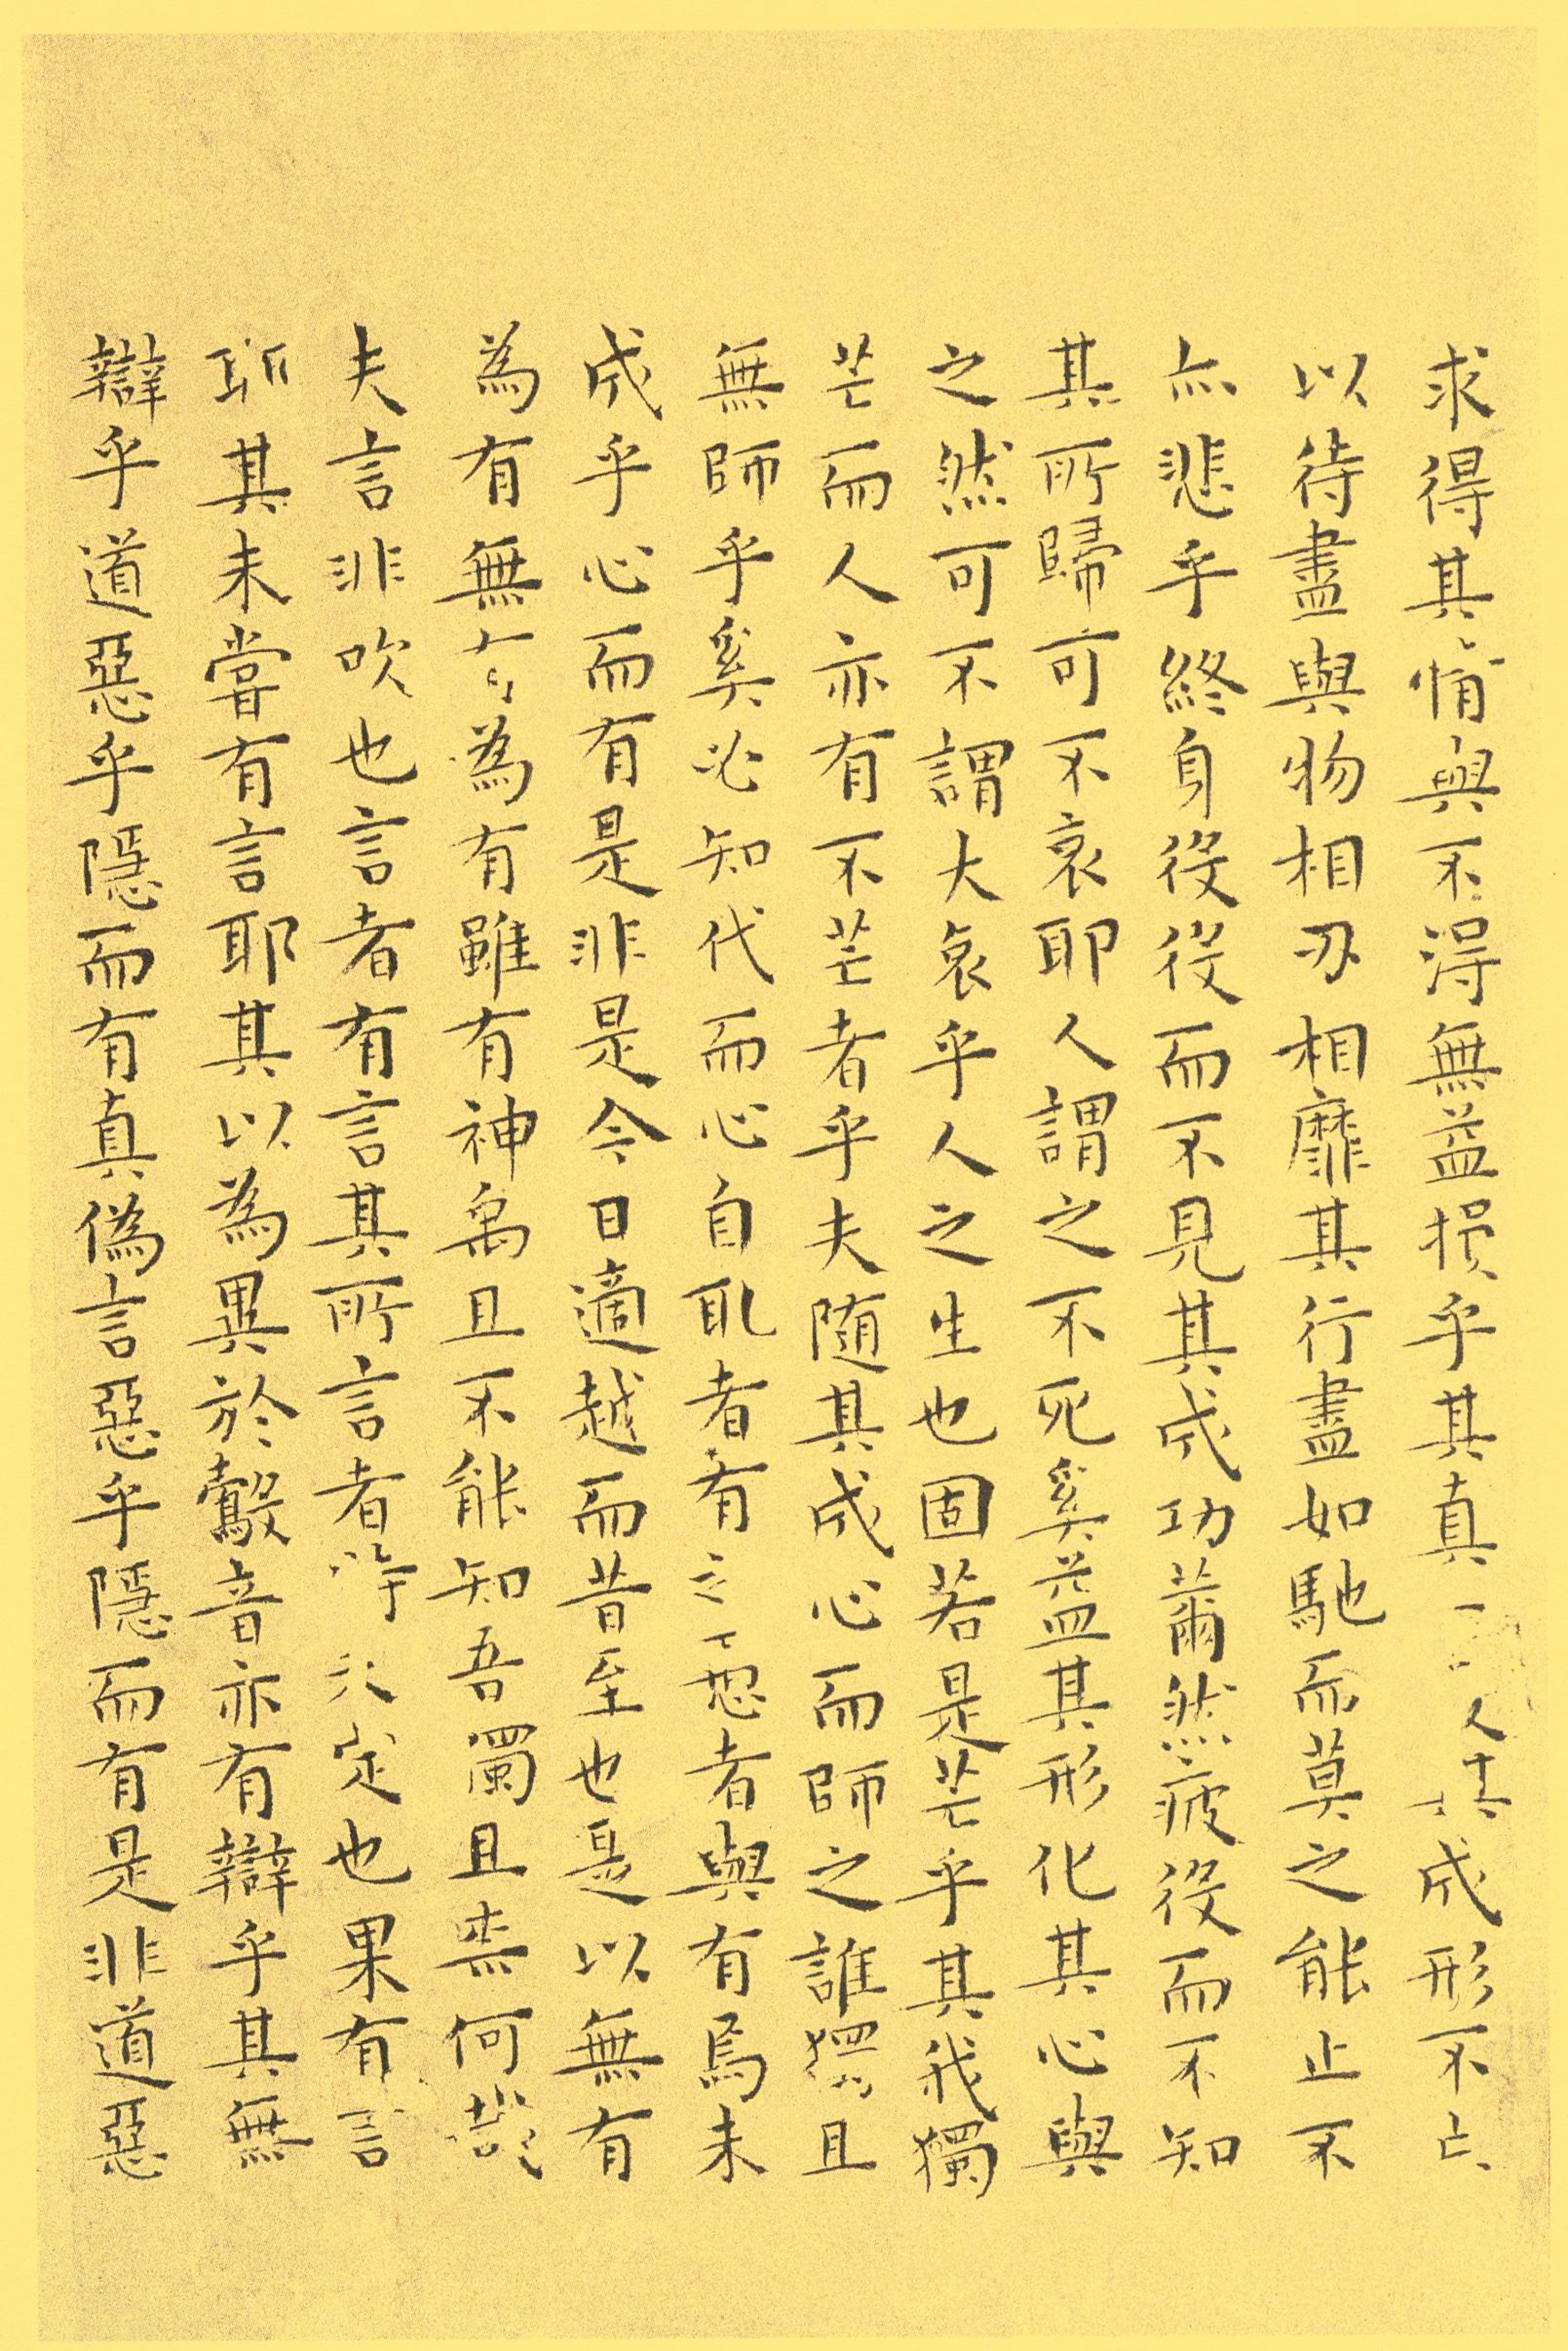 求得其情與不得無益損乎其真一人其成形不亡
以待盡與物相刃相靡其行盡如馳而莫之能止不
亦悲乎終身役役而不見其成功薾然疲役而不知
其所歸可不哀耶人謂之不死奚益其形化其心與
之然可不謂大哀乎人之生也固若是芒乎其我獨
芒而人亦有不芒者乎夫隨其成心而師之誰獨且
無師乎奚必知代而心自取者有之愚者與有焉未
成乎心而有是非是今日適越而昔至也是以無有
為有無有為有雖有神禹且不能知吾獨且柰何哉
夫言非吹也言者有言其所言者特未定也果有言
耶其未嘗有言耶其以為異於鷇音亦有辯乎其無
辯乎道惡乎隱而有真偽言惡乎隱而有是非道惡